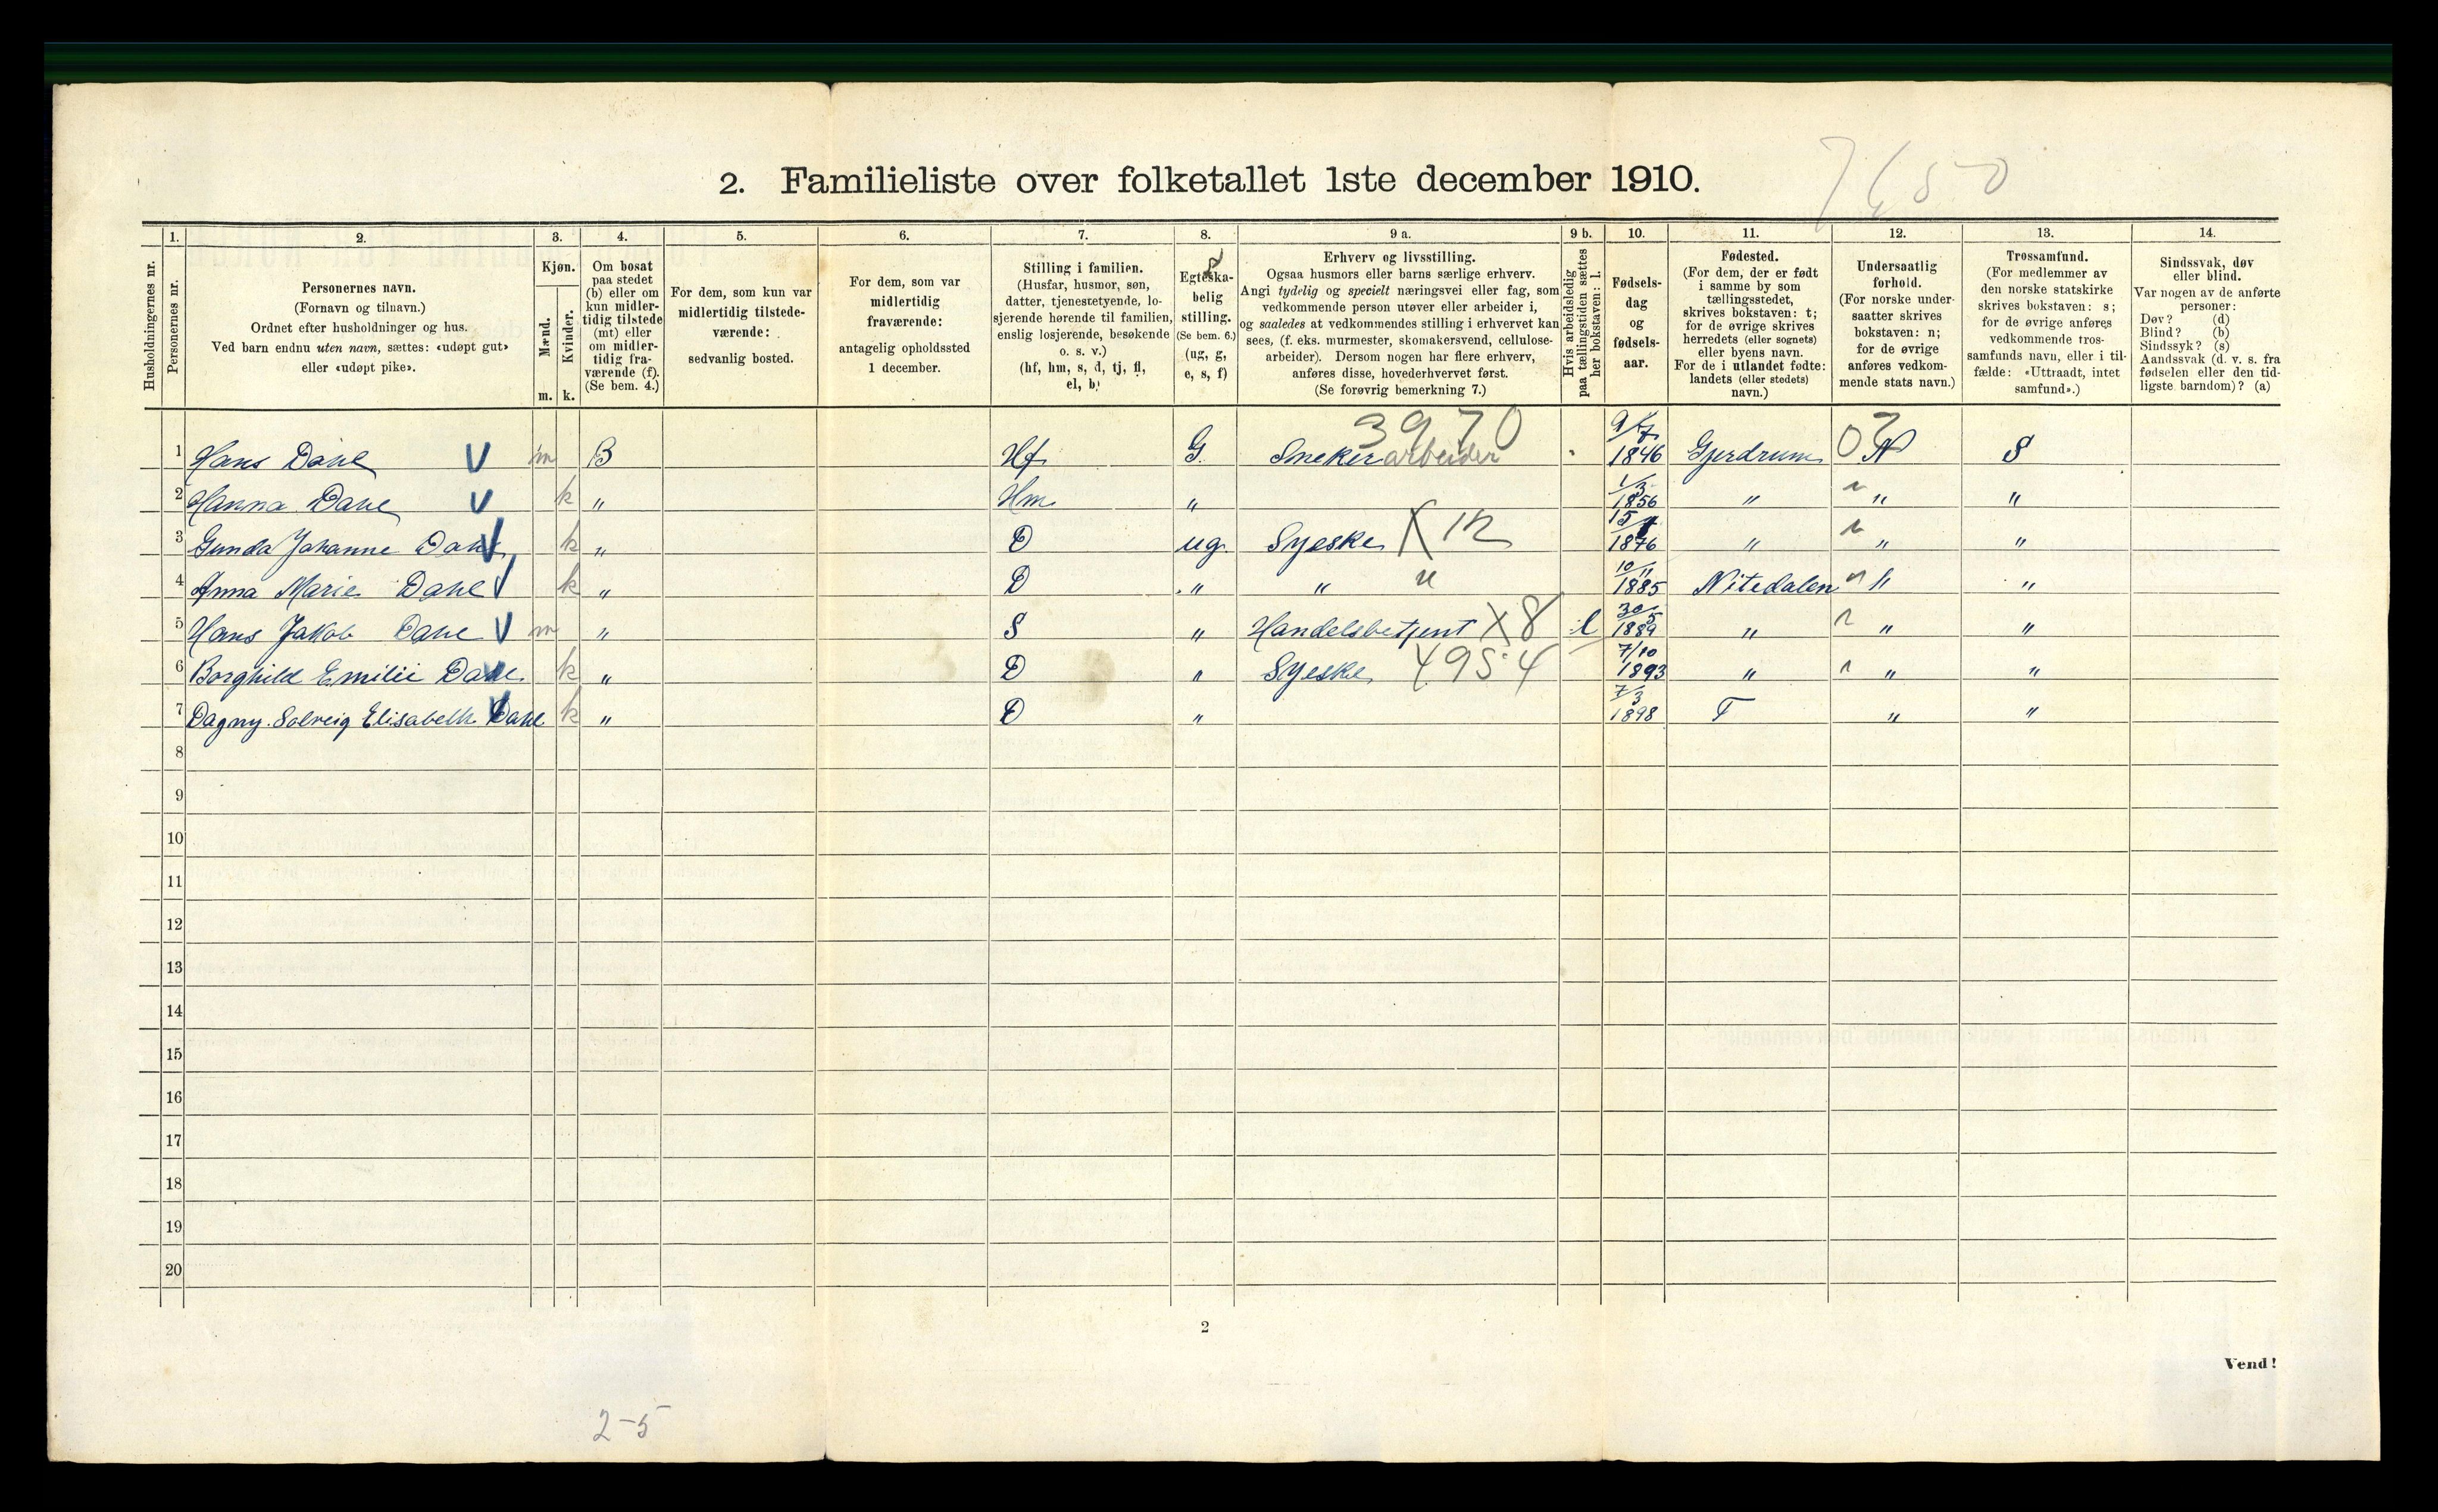 2. Familieliste over folketallet 1ste december 1910.
7650
1. 2. 3. 4. 5. 6. 7. 8. 9 a. 9 b. 10. 11. 12. 13. 14.
Husholdningernes nr.
Personernes nr.
Personernes navn.
(Fornavn og tilnavn.)
Ordnet efter husholdninger og hus.
Ved barn endnu uten navn, sættes: «udøpt gut»
eller «udøpt pike».
Kjøn.
Mænd.
Kvinder.
m. k.
Om bosat
paa stedet
(b) eller om
kun midler-
tidig tilstede
(mt) eller
om midler-
tidig fra-
værende (f).
(Se bem. 4.)
For dem, som kun var
midlertidig tilstede-
værende:
sedvanlig bosted.
For dem, som var
midlertidig
fraværende:
antagelig opholdssted
1 december.
Stilling i familien.
(Husfar, husmor, søn,
datter, tjenestetyende, lo-
sjerende hørende til familien,
enslig losjerende, besøkende
o. s. v.)
(hf, hm, s, d, tj, fl,
el, b)
Egteska-
belig
stilling.
(Se bem. 6.)
(ug, g,
e, s, f)
Erhverv og livsstilling.
Ogsaa husmors eller barns særlige erhverv.
Angi tydelig og specielt næringsvei eller fag, som
vedkommende person utøver eller arbeider i,
og saaledes at vedkommendes stilling i erhvervet kan
sees, (f. eks. murmester, skomakersvend, cellulose-
arbeider). Dersom nogen har flere erhverv,
anføres disse, hovederhvervet først.
(Se forøvrig bemerkning 7.)
Hvis arbeidsledig
paa tællingstiden sættes
her bokstaven: l.
Fødsels-
dag
og
fødsels-
aar.
Fødested.
(For dem, der er født
i samme by som
tællingsstedet,
skrives bokstaven: t;
for de øvrige skrives
herredets (eller sognets)
eller byens navn.
For de i utlandet fødte:
landets (eller stedets)
navn.)
Undersaatlig
forhold.
(For norske under-
saatter skrives
bokstaven: n;
for de øvrige
anføres vedkom-
mende stats navn.)
Trossamfund.
(For medlemmer av
den norske statskirke
skrives bokstaven: s;
for de øvrige anføres
vedkommende tros-
samfunds navn, eller i til-
fælde: «Uttraadt, intet
samfund».)
Sindssvak, døv
eller blind.
Var nogen av de anførte
personer:
Døv? (d)
Blind? (b)
Sindssyk? (s)
Aandssvak (d. v. s. fra
fødselen eller den tid-
ligste barndom)? (a)
3970
1 Hans Dahl V m B Hf G. Snekerarbeider 9/7 1846 Gjerdrum N S
2 Hanna Dahl V k " Hm " 1/3 1856 " n " "
3 Gunda Johanne Dahl V k " D ug. Syeske X 12 1876 " n " "
4 Anna Marie Dahl V k " D " " " 10/11 1885 Nitedalen n " "
5 Hans Jakob Dahl V m " S " Handelsbetjent X8 l 30/5 1889 " n " "
6 Borghild Emilie Dahl V k " D " Syeske 4954 7/10 1893 " n " "
7 Dagny Solveig Elisabeth Dahl V k " D " 7/3 1898 T " "
8
9
10
11
12
13
14
15
16
17
18
19
20
2
Vend!
2-5